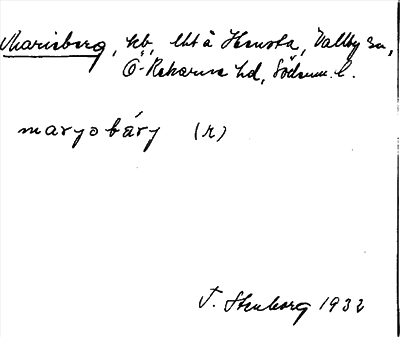 Marieberg, hb, lht å Hensta, Vallby sn,
Ö-Rekarne hd, Söderm. l.
maryobáry (r)
T. Stenborg 1932